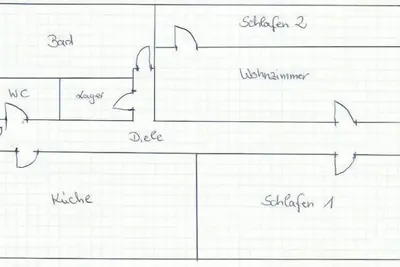 Schlafen 2
Bad
Wohnzimmer
WC
Lager
Diele
Küche
Schlafen 1